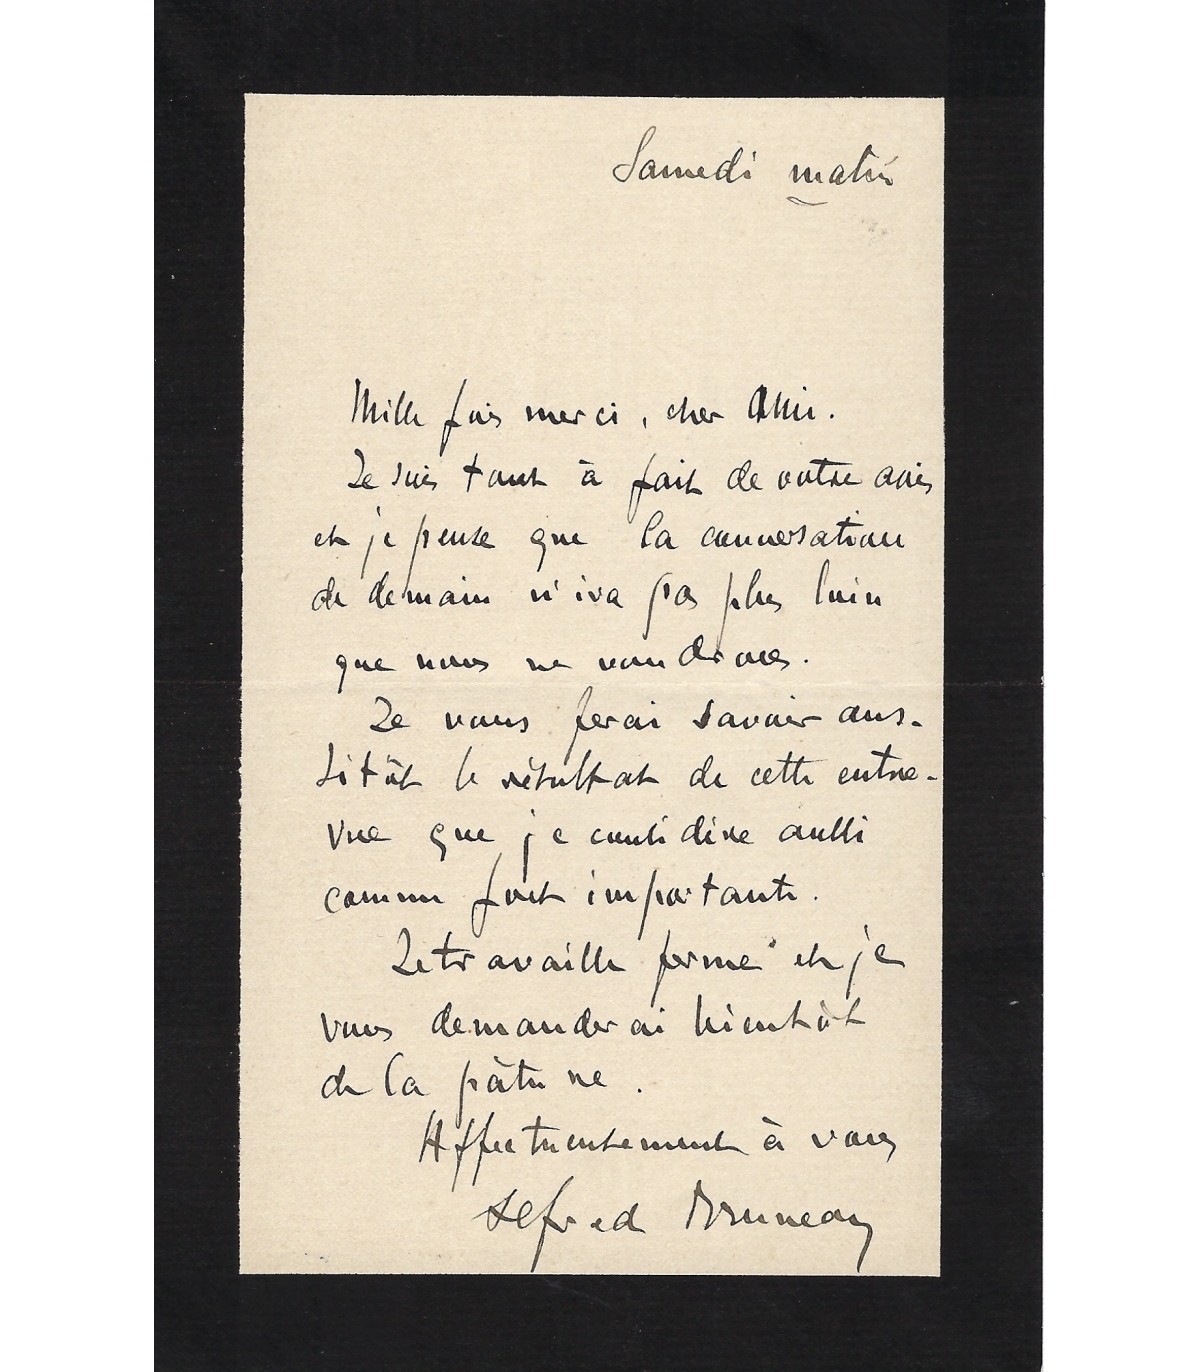 Samedi matin
Mille fois merci, cher Ami.
Je suis tout à fait de votre avis
et je pense que la conversation
de demain n'ira pas plus loin
que nous ne voudrons.
Je vous ferai savoir aus-
sitôt le résultat de cette entre-
vue que je considère aussi
comme fort importante.
Je travaille ferme et je
vous demanderai bientôt
de la pâture.
Affectueusement à vous
Alfred Bruneau